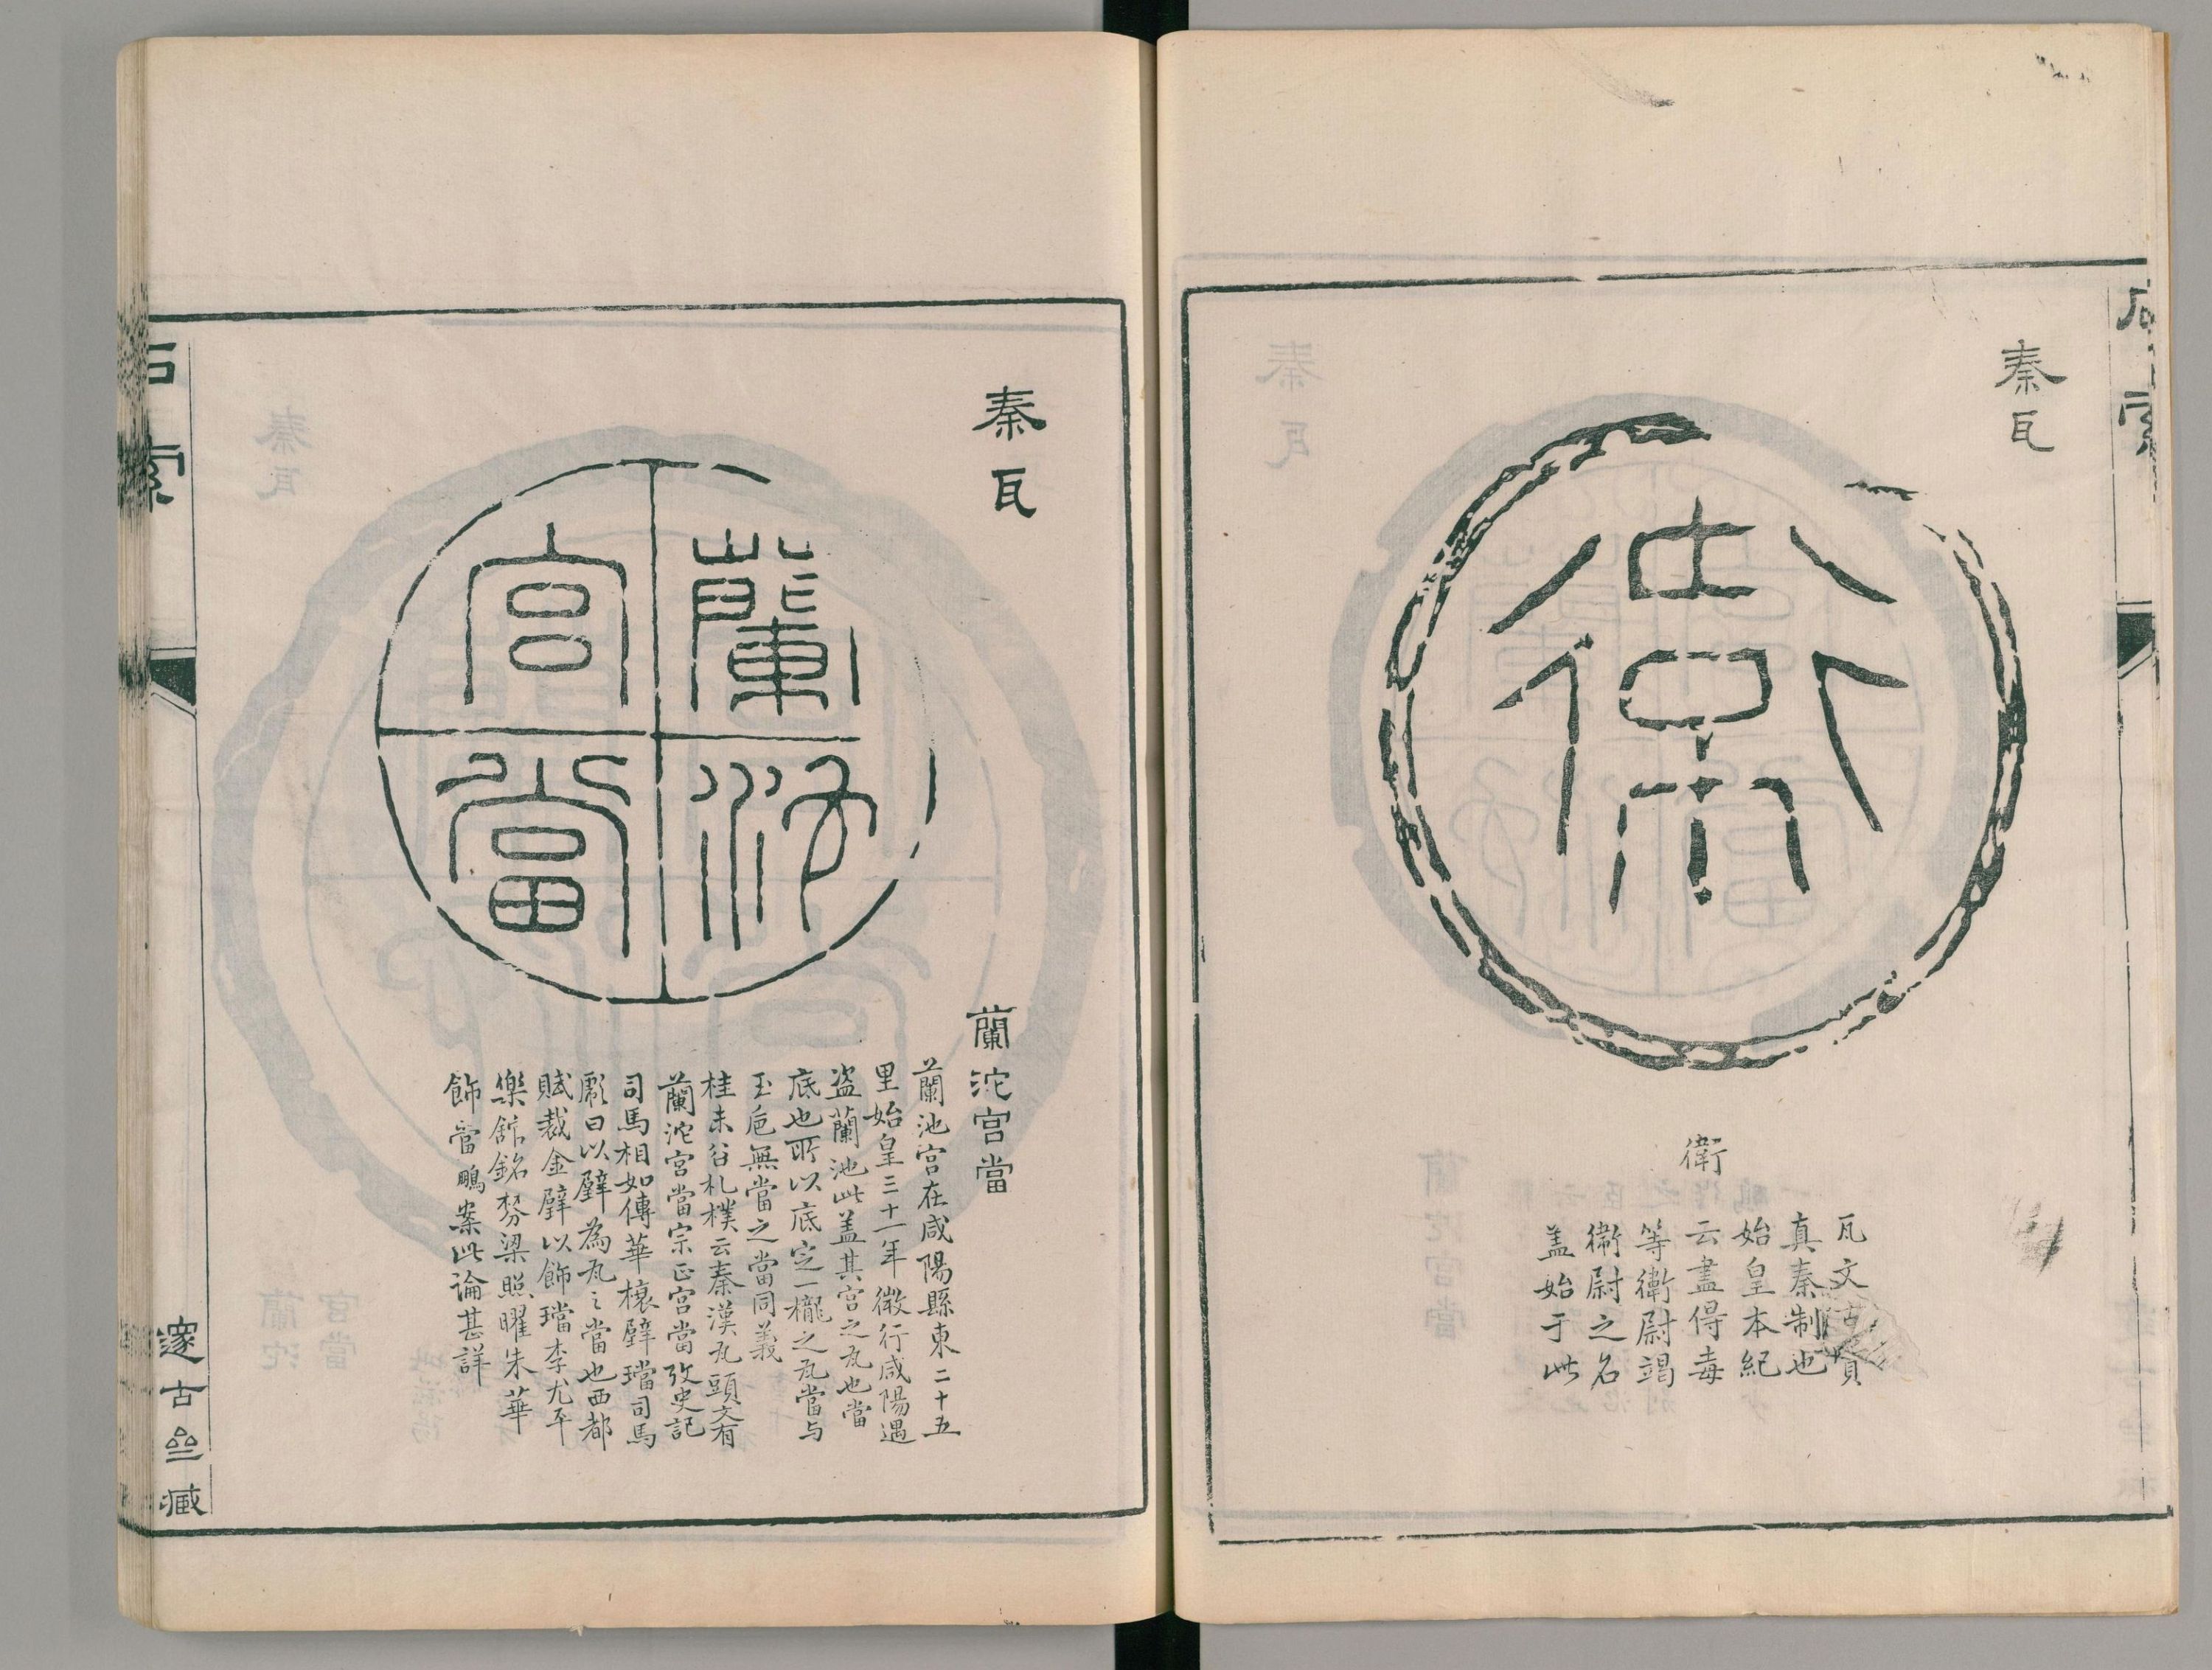 石索
秦瓦
衛
衛
瓦文古質
真秦制也
始皇本紀
云盡得毐
等衛尉竭
衛尉之名
盖始于此
秦瓦
蘭沱
宮當
蘭沱宮當
蘭池宮在咸陽縣東二十五
里始皇三十一年微行咸陽遇
盗蘭池此盖其宮之瓦也當
底也所以底定一櫳之瓦當与
玉卮無當之當同義
桂未谷札樸云秦漢瓦頭文有
蘭沱宮當宗正宮當攷史記
司馬相如傳華榱璧璫司馬
彪曰以璧為瓦之當也西都
賦裁金璧以飾璫李尤平
樂館銘棼梁照曜朱華
飾當鵬案此論甚詳
石索
邃古亝臧